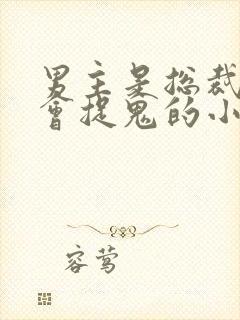 男主是总裁
会捉鬼的小
容莺